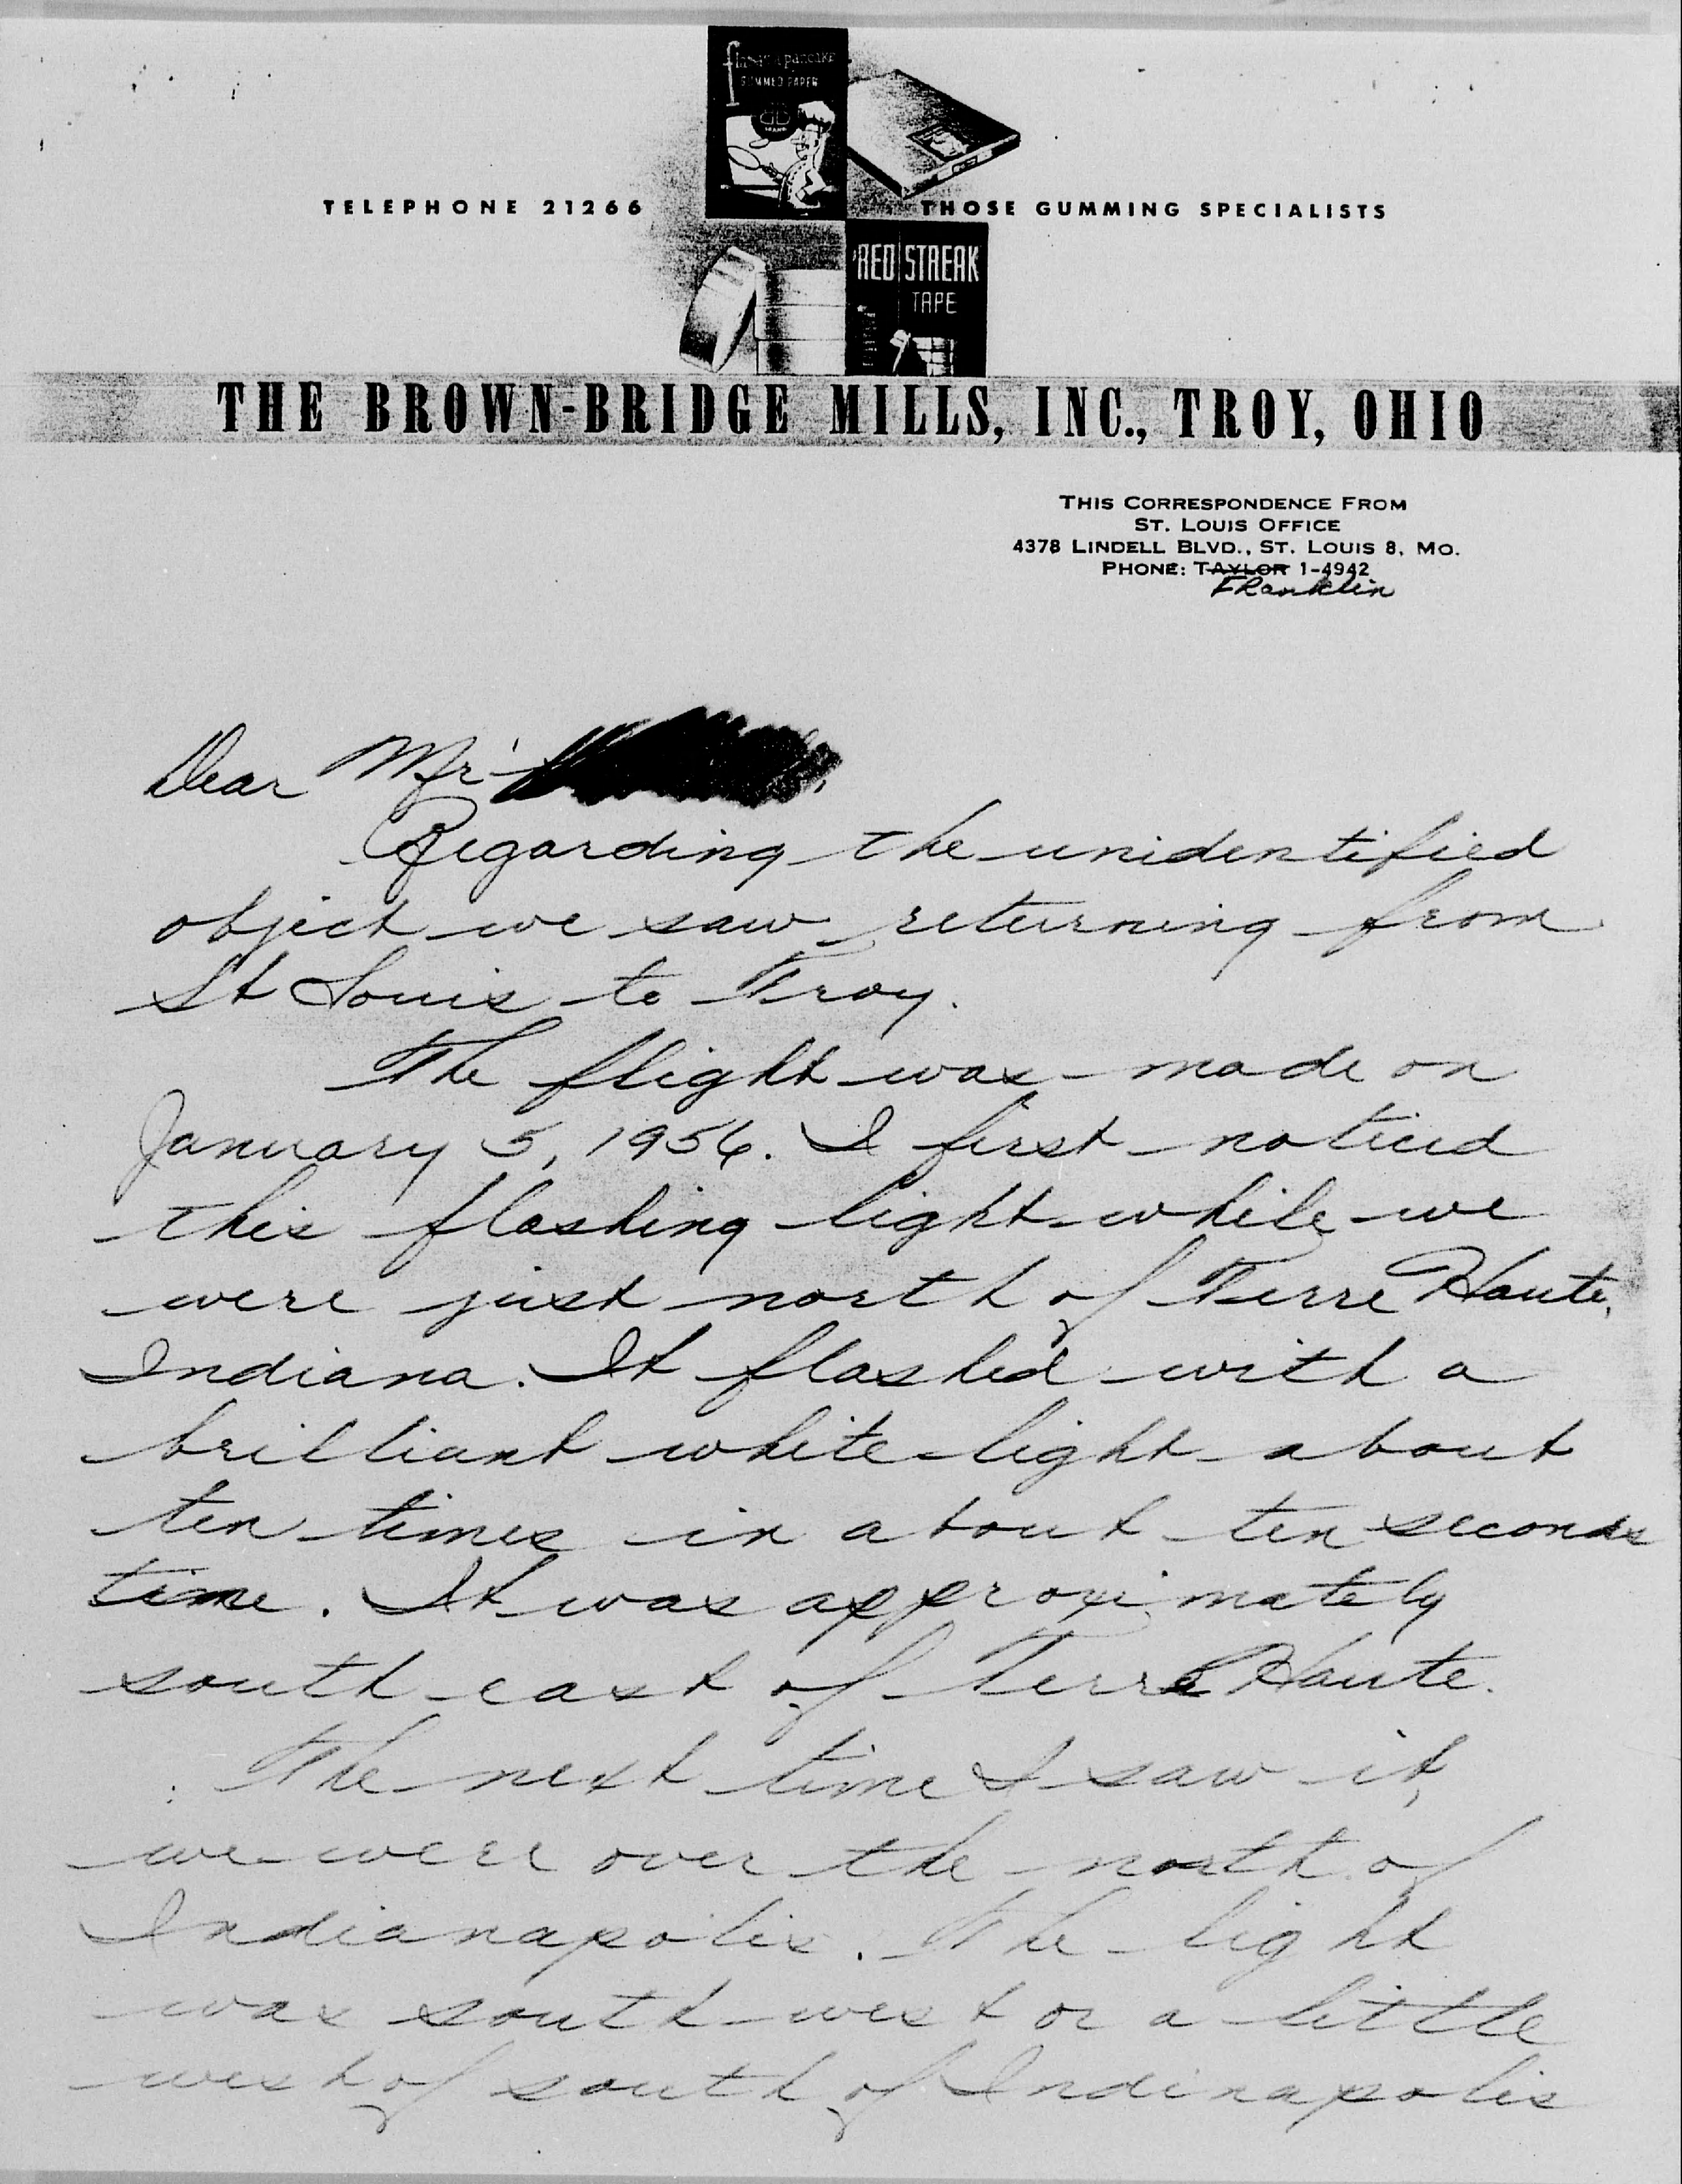 flat as a pancake
GUMMED PAPER
BB
BRAND
TELEPHONE 21266
THOSE GUMMING SPECIALISTS
RED STREAK
TAPE
THE BROWN-BRIDGE MILLS, INC., TROY, OHIO
THIS CORRESPONDENCE FROM
ST. LOUIS OFFICE
4378 LINDELL BLVD., ST. LOUIS 8, MO.
PHONE: TAYLOR 1-4942
FRanklin
Dear Mr.
Regarding the unidentified
object we saw returning from
St Louis to Troy.
The flight was made on
January 5, 1956. I first noticed
this flashing light while we
were just north of Terre Haute,
Indiana. It flashed with a
brilliant white light about
ten times in about ten seconds
time. It was approximately
south east of Terre Haute.
The next time I saw it,
we were over the north of
Indianapolis. The light
was south west or a little
west of south of Indinapolis